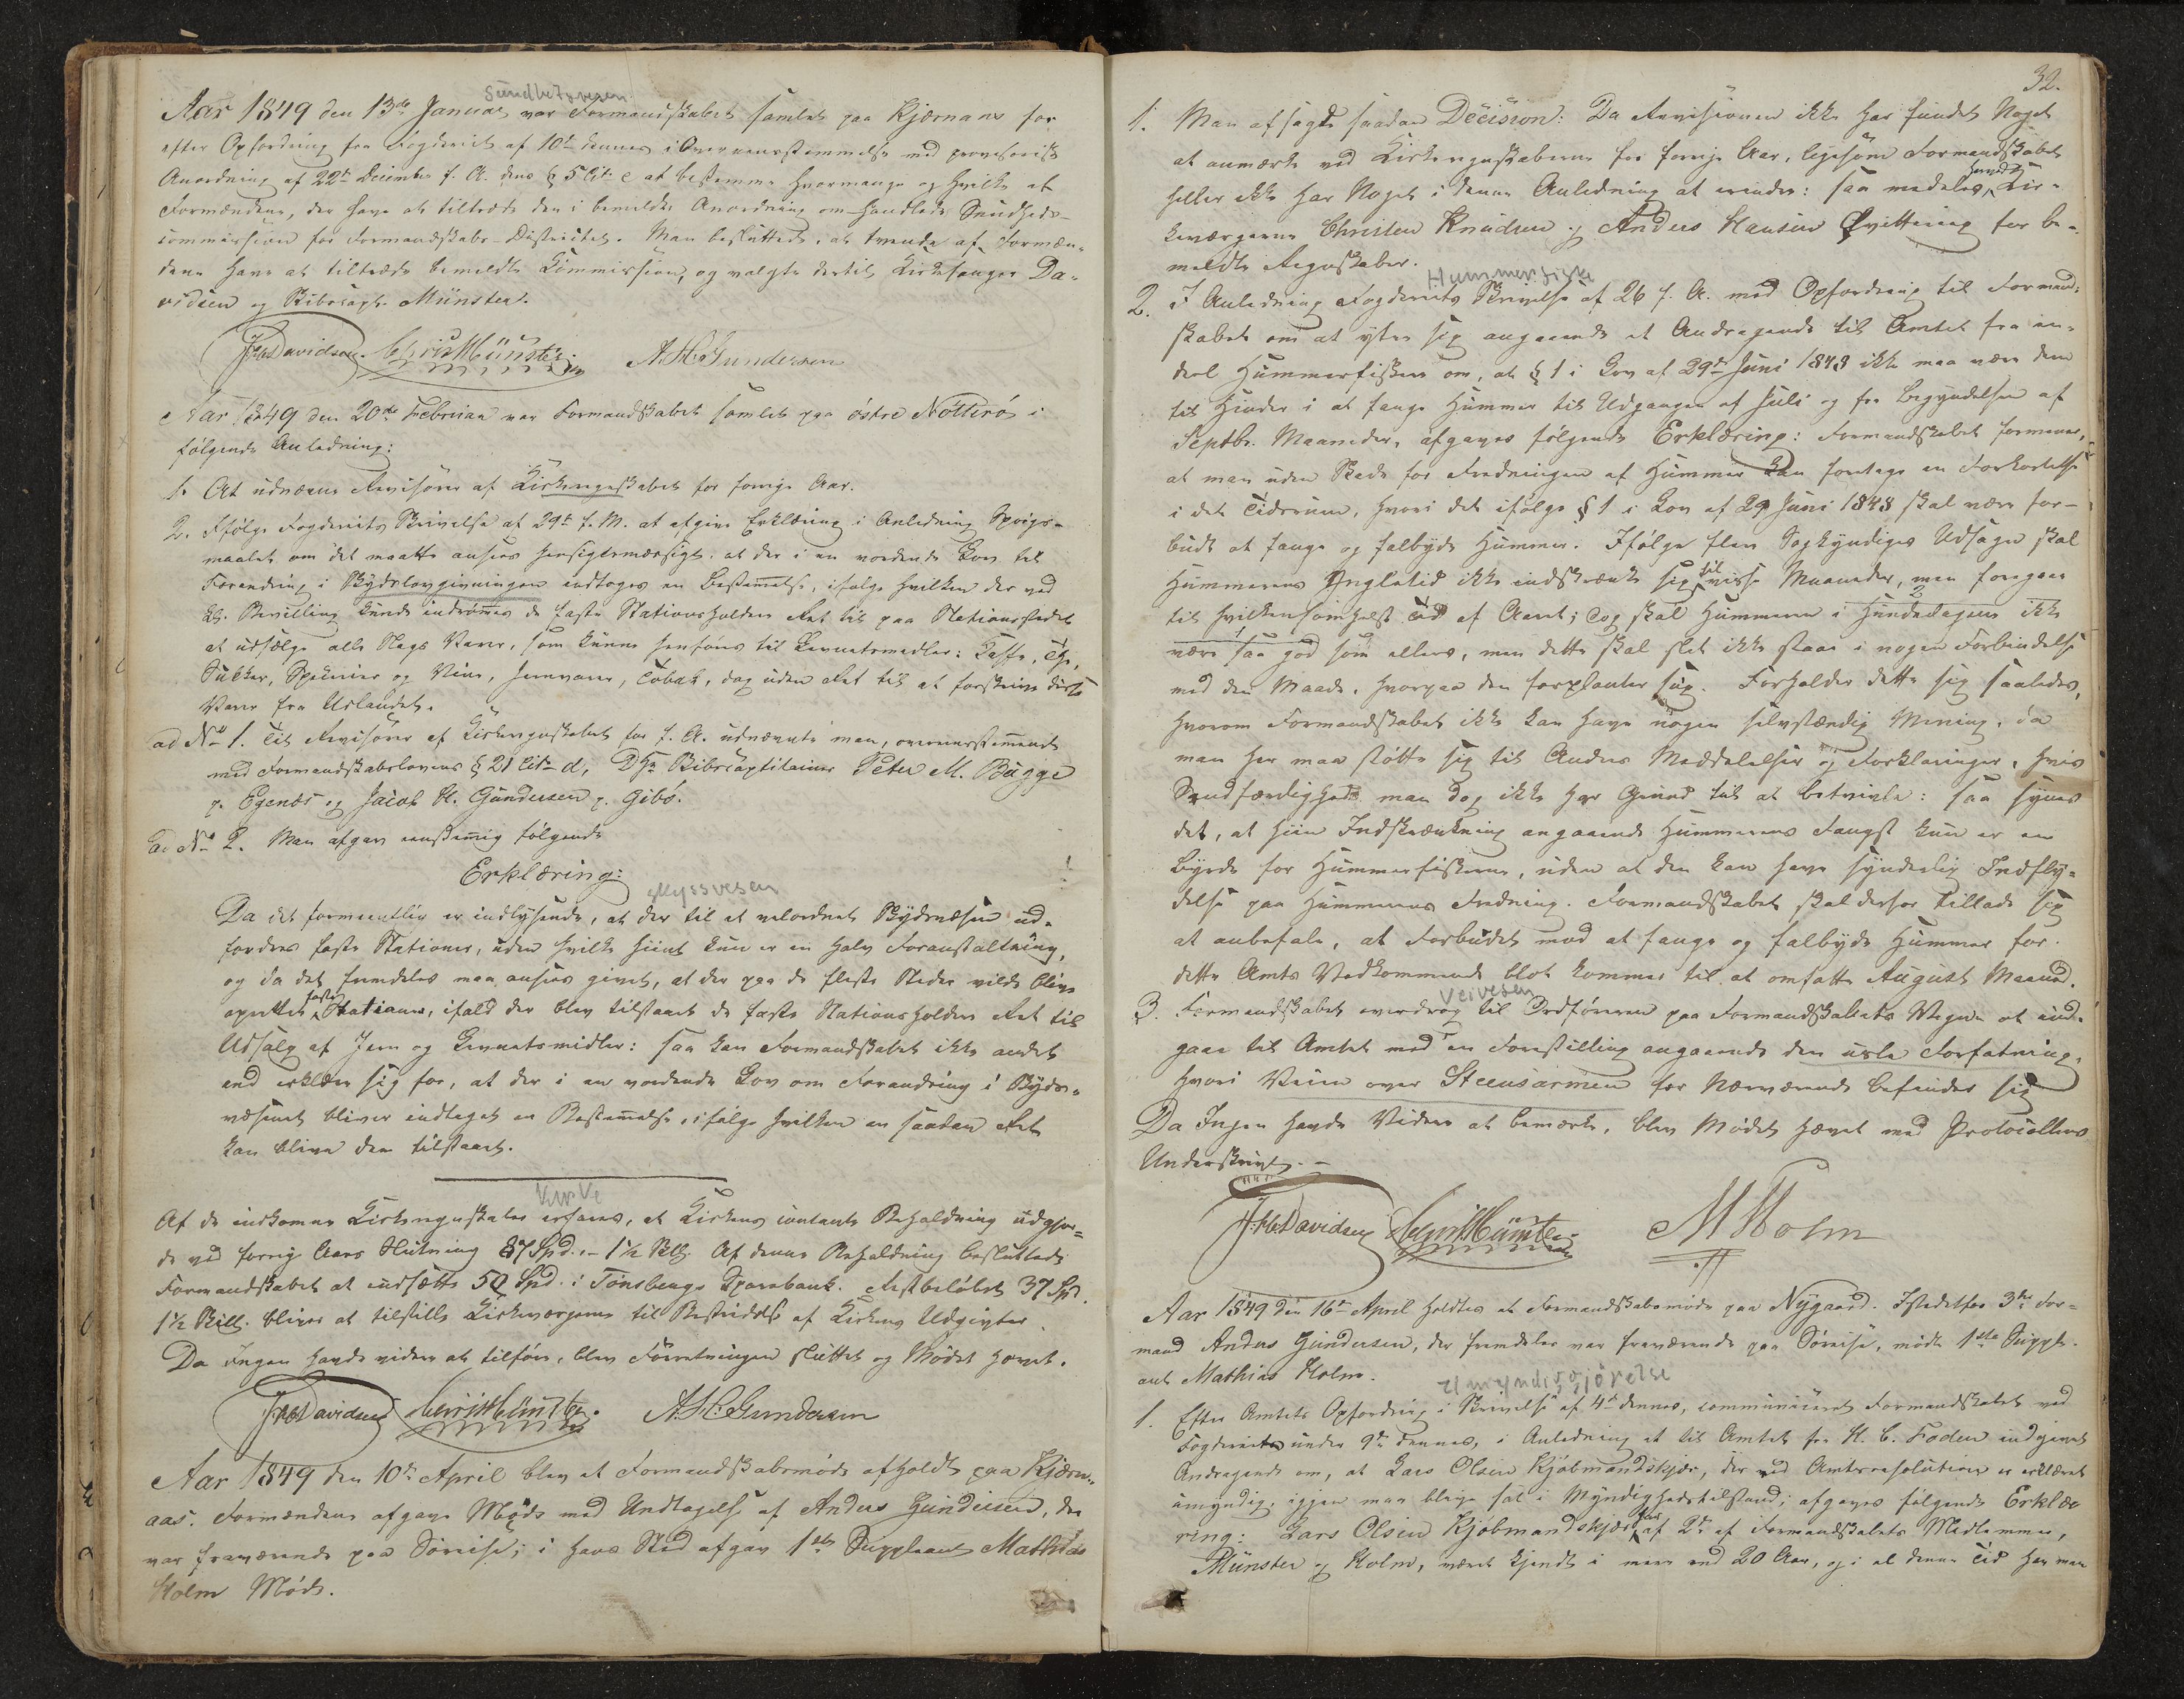 Sundhetsvesen
Aar 1849 den 13de Januar var Formandskabet samlet paa Kjærnaas for
efter Opfordring fra Fogderiet af 10de dennes i Overeensstemmelse med provisorisk
Anordning af 22de December f. A. dens § 5 Litr. c at bestemme hvormange og hvilke af
Formændene, der have at tiltræde den i bemeldte Anordning om-handlede Sundheds-
commission for Formandskabs-Districtet. Man besluttede, at tvende af Formæn-
dene have at tiltræde bemeldte Commission, og valgte dertil Kirkesanger Da-
vidsen og Skibscapt. Münster.
Davidsen. Chris Münster. A. H. Gundersen
Aar 1849 den 20de Februar var Formandskabet samlet paa østre Nøtterö i
følgende Anledning:
1. At udnævne Revisorer af Kirkeregnskabet for forrige Aar.
2. Ifølge Fogderiets Skrivelse af 29de f. M. at afgive Erklæring i Anledning Spørgs-
maalet om det maatte ansees hensigtsmæssigt, at der i en vordende Lov til
Forandring i Skydslovgivningen indtoges en Bestemmelse, ifølge hvilken der ved
Kgl. Bevilling kunde indrømmes de faste Stationsholdere Ret til paa Stationsstedet
at udsælge alle Slags Varer, som kunne henføres til Levnetsmidler: Kaffe, The,
Sukker, Specerier og Vine, Jernvarer, Tobak, dog uden Ret til at forskrive disse
Varer fra Udlandet.
ad No 1. Til Revisorer af Kirkeregnskabet for f. A. udnævnte man, overeensstemmende
med Formandskabslovens § 21 Litr. d, DHr. Skibscaptitainer Peter M. Bugge
p. Egenæs og Jacob H. Gundersen p. Gibö.
ad No 2. Man afgav eenstemmig følgende
Erklæring:
skyssvesen
Da det formeentlig er indlysende, at der til et velordnet Skydsvæsen ud-
fordres faste Stationer, uden hvilke hiint kun er en halv Foranstaltning,
og da det fremdeles maa ansees givet, at der paa de fleste Steder vilde blive
oprettet faste Stationer, ifald der blev tilstaaet de faste Stationsholdere Ret til
Udsalg af Jern og Levnetsmidler: saa kan Formandskabet ikke andet
end erklære sig for, at der i en vordende Lov om Forandring i Skyds-
væsenet bliver indtaget en Bestemmelse, ifølge hvilken en saadan Ret
kan blive dem tilstaaet.
Af de indkomne Kirkeregnskaber erfares, at Kirkens contante Beholdning udgjor-
de ved forrige Aars Slutning 87 Spd. - 1½ Skill. Af denne Beholdning besluttede
Formandskabet at indsætte 50 Spd. i Tönsbergs Sparebank. Restbeløbet 37 Spd.
1½ Skill. bliver at tilstille Kirkeværgerne til Bestridelse af Kirkens Udgivter.
Da Ingen havde videre at tilføre, blev Forretningen sluttet og Mödet hævet.
Davidsen Chris Münster. A. H. Gundersen
Aar 1849 den 10de April blev et Formandskabsmöde afholdt paa Kjærn-
aas. Formændene afgave Möde med Undtagelse af Anders Gundersen, der
var fraværende paa Søreise; i hans Sted afgav 1ste Suppleant Mathias
Holm Möde.
32.
1. Man afsagde saadan Decision: Da Revisionen ikke har fundet Noget
at anmærke ved Kirkeregnskaberne for forrige Aar, ligesom Formandskabet
heller ikke har Noget i denne Anledning at erindre: saa meddeles herved Kir-
keværgerne Christen Knudsen og Anders Hansen Qvittering for be-
meldte Regnskaber.
Hummerfiske
2. I Anledning Fogderiets Skrivelse af 26 f. A. med Opfordring til Formand-
skabet om at yttre sig angaaende et Andragende til Amtet fra en-
deel Hummerfiskere om, at § 1 i Lov af 29de Juni 1848 ikke maa være dem
til Hinder i at fange Hummer til Udgangen af Juli og fra Begyndelsen af
Septbr. Maaneder, afgaves følgende Erklæring: Formandskabet formener,
at man uden Skade for Fredningen af Hummer kan foretage en Forkortelse
i det Tidsrum, hvori det ifølge § 1 i Lov af 29 Juni 1848 skal være for-
budt at fange og falbyde Hummer. Ifølge flere Sagkyndiges Udsagn skal
Hummerens Yngletid ikke indskrænke sig til visse Maaneder, men foregaae
til hvilkensomhelst Tid af Aaret; dog skal Hummeren i Hundedagene ikke
være saa god som ellers, men dette skal slet ikke staae i nogen Forbindelse
med den Maade, hvorpaa den forplanter sig. Forholder dette sig saaledes,
hvorom Formandskabet ikke kan have nogen selvstændig Mening, da
man her maa støtte sig til Andres Meddelelser og Forklaringer, hvis
Sandfærdighed man dog ikke har Grund til at betvivle: saa synes
det, at hiin Indskrænkning angaaende Hummerens Fangst kun er en
Byrde for Hummerfiskerne, uden at den kan have synderlig Indfly-
delse paa Hummerens Fredning. Formandskabet skal derfor tillade sig
at anbefale, at Forbudet mod at fange og falbyde Hummer for
dette Amts Vedkommende blot kommer til at omfatte August Maaned.
Veivesen
3. Formandskabet overdrog til Ordføreren paa Formandskabets Vegne at ind-
gaae til Amtet med en Forestilling angaaende den usle Forfatning,
hvori Veien over Steensarmen for Nærværende befinder sig
Da Ingen havde Videre at bemærke, blev Mödet hævet med Protocollens
Underskrivt. -
Davidsen Chris Münster. M Holm
Aar 1849 den 16de April holdtes et Formandskabsmöde paa Nygaard. Istedetfor 3die For-
mand Anders Gundersen, der fremdeles var fraværende paa Søreise, mødte 1ste Supple-
ant Mathias Holm.
Umyndiggjörelse
1. Efter Amtets Opfordring i Skrivelse af 4de dennes, communiceret Formandskabet ved
Fogderiet under 9de dennes, i Anledning et til Amtet fra H. C. Foden indgivet
Andragende om, at Lars Olsen Kjöbmandskjær, der ved Amtsresolution er erklæret
umyndig, igjen maa blive sat i Myndighedstilstand; afgaves følgende Erklæ
ring: Lars Olsen Kjöbmandskjær har af 2de af Formandskabets Medlemmer,
Münster og Holm, været kjendt i mere end 20 Aar, og i al denne Tid har man